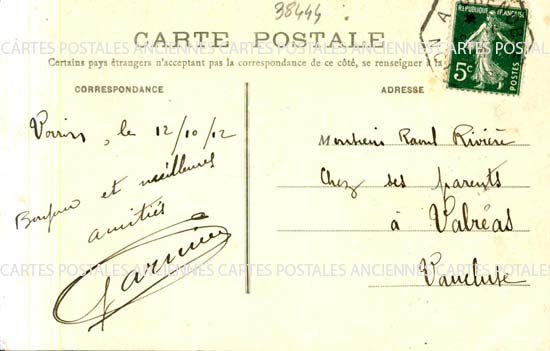 38444
CARTE POSTALE
Certains pays étrangers n'acceptant pas la correspondance de ce côté, se renseigner à la
CORRESPONDANCE
ADRESSE
RÉPUBLIQUE FRANÇAISE
5c
POSTES
le 12/10/12
Bonjour et meilleures
amitiés
Monsieur Raoul Rivière
Chez ses parents
à Valréas
Vaucluse
CARTES POSTALES ANCIENNES CARTES POSTALES ANCIENNES CARTES POSTALES ANCIENNES
CARTES POSTALES ANCIENNES CARTES POSTALES ANCIENNES CARTES POSTALES ANCIENNES